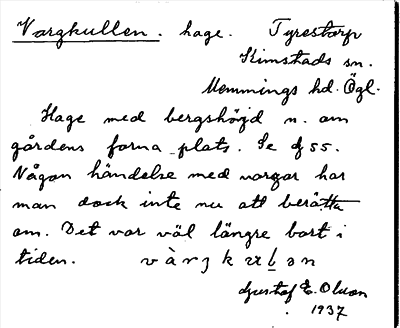 Vargkullen. hage. Tyrestorp
Kimstads sn.
Memmings hd. Ögl.
Hage med bergshöjd n. om
gårdens forna plats. Se
Någon händelse med vargar har
man dock inte nu att berätta
om. Det var väl längre bort i
tiden.
Gustaf E. Olson
1937